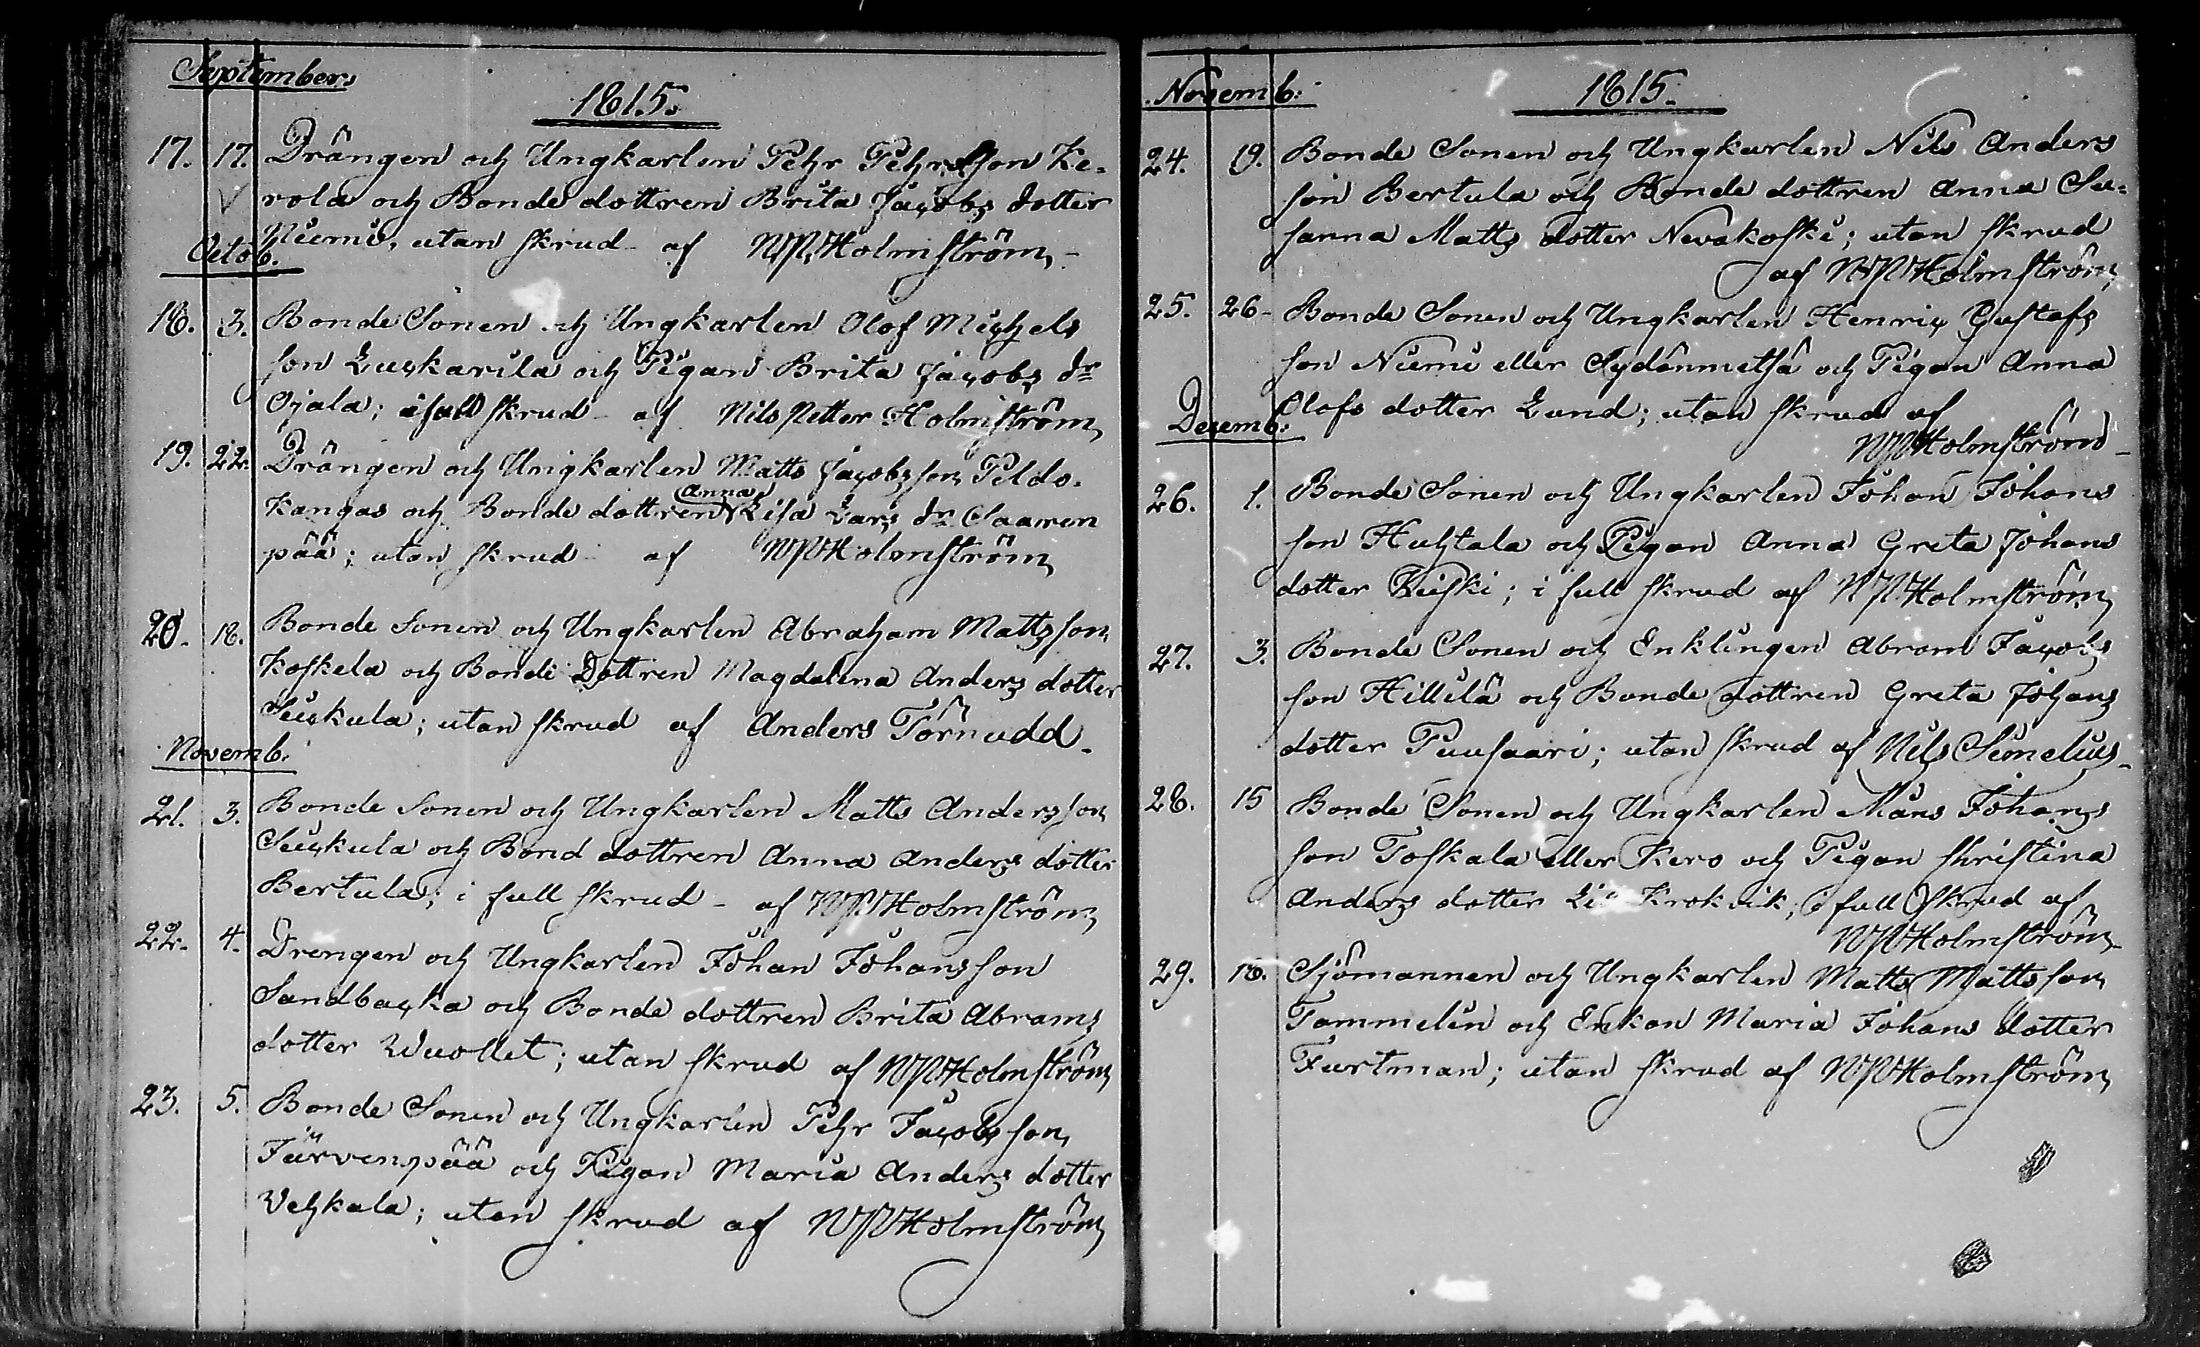 September
1815.
17. 17. Drängen och Ungkarlen Pehr Pehrsson Ke-
rola och Bonde dottren Brita Jacobs dotter
Niemi, utan skrud af NPHolmström,
Octob.
18. 3. Bonde Sonen och Ungkarlen Olof Michels
son Luckarila och Pigan Brita Jacobs dr
Ojala; i full skrud af Nils Petter Holmström,
19. 22. Drängen och Ungkarlen Matts Jacobsson Peldo-
Anna
kangas och Bonde dottren Lisa Lars dr Saaren
pää; utan skrud af NPHolmström
20. 18. Bonde Sonen och Ungkarlen Abraham Mattsson
Koskela och Bonde Dottren Magdalena Anders dotter
Kuckula; utan skrud af Anders Törnudd.
Novemb.
21. 3. Bonde Sonen och Ungkarlen Matts Andersson
och Bond dottren Anna Anders dotter
Bertula; i full skrud - af NPHolmström
22. 4. Drengen och Ungkarlen Johan Johansson
Sandbacka och Bonde dottren Brita Abrams
dotter Wuollet; utan skrud af NPHolmström
23. 5. Bonde Sonen och Ungkarlen Pehr Jacobsson
Järvenpää och Pigan Maria Anders dotter
Vehkala; utan skrud af NPHolmström
Novemb:
1815.
24. 19. Bonde Sonen och Ungkarlen Nils Anders
son Bertula och Bonde dottren Anna Su-
sanna Matts dotter Nevakoski; utan skrud
af NPHolmström,
25. 26- Bonde Sonen och Ungkarlen Henric Gustafs
son Niemi eller Sydänmetsä och Pigan Anna
Olofs dotter Lund; utan skrud af
Decemb:
NPHolmström
26. 1. Bonde Sonen och Ungkarlen Johan Johans
son Huhtala och Pigan Anna Greta Johans
dotter; i full skrud af NPHolmström
27. 3. Bonde Sonen och Enklingen Abram Jacobs
son Hillilä och Bonde dottren Greta Johans
dotter Tuusaari; utan skrud af Nils
28. 15 Bonde Sonen och Ungkarlen Måns Johans
son Toskala eller Kero och Pigan Christina
Anders dotter Lill Krokvik, i full skrud af
NPHolmström
29. 18. Sjömannen och Ungkarlen Matts Mattsson
Tammelin och Enkan Maria Johans dotter
Furtman; utan skrud af NPHolmström